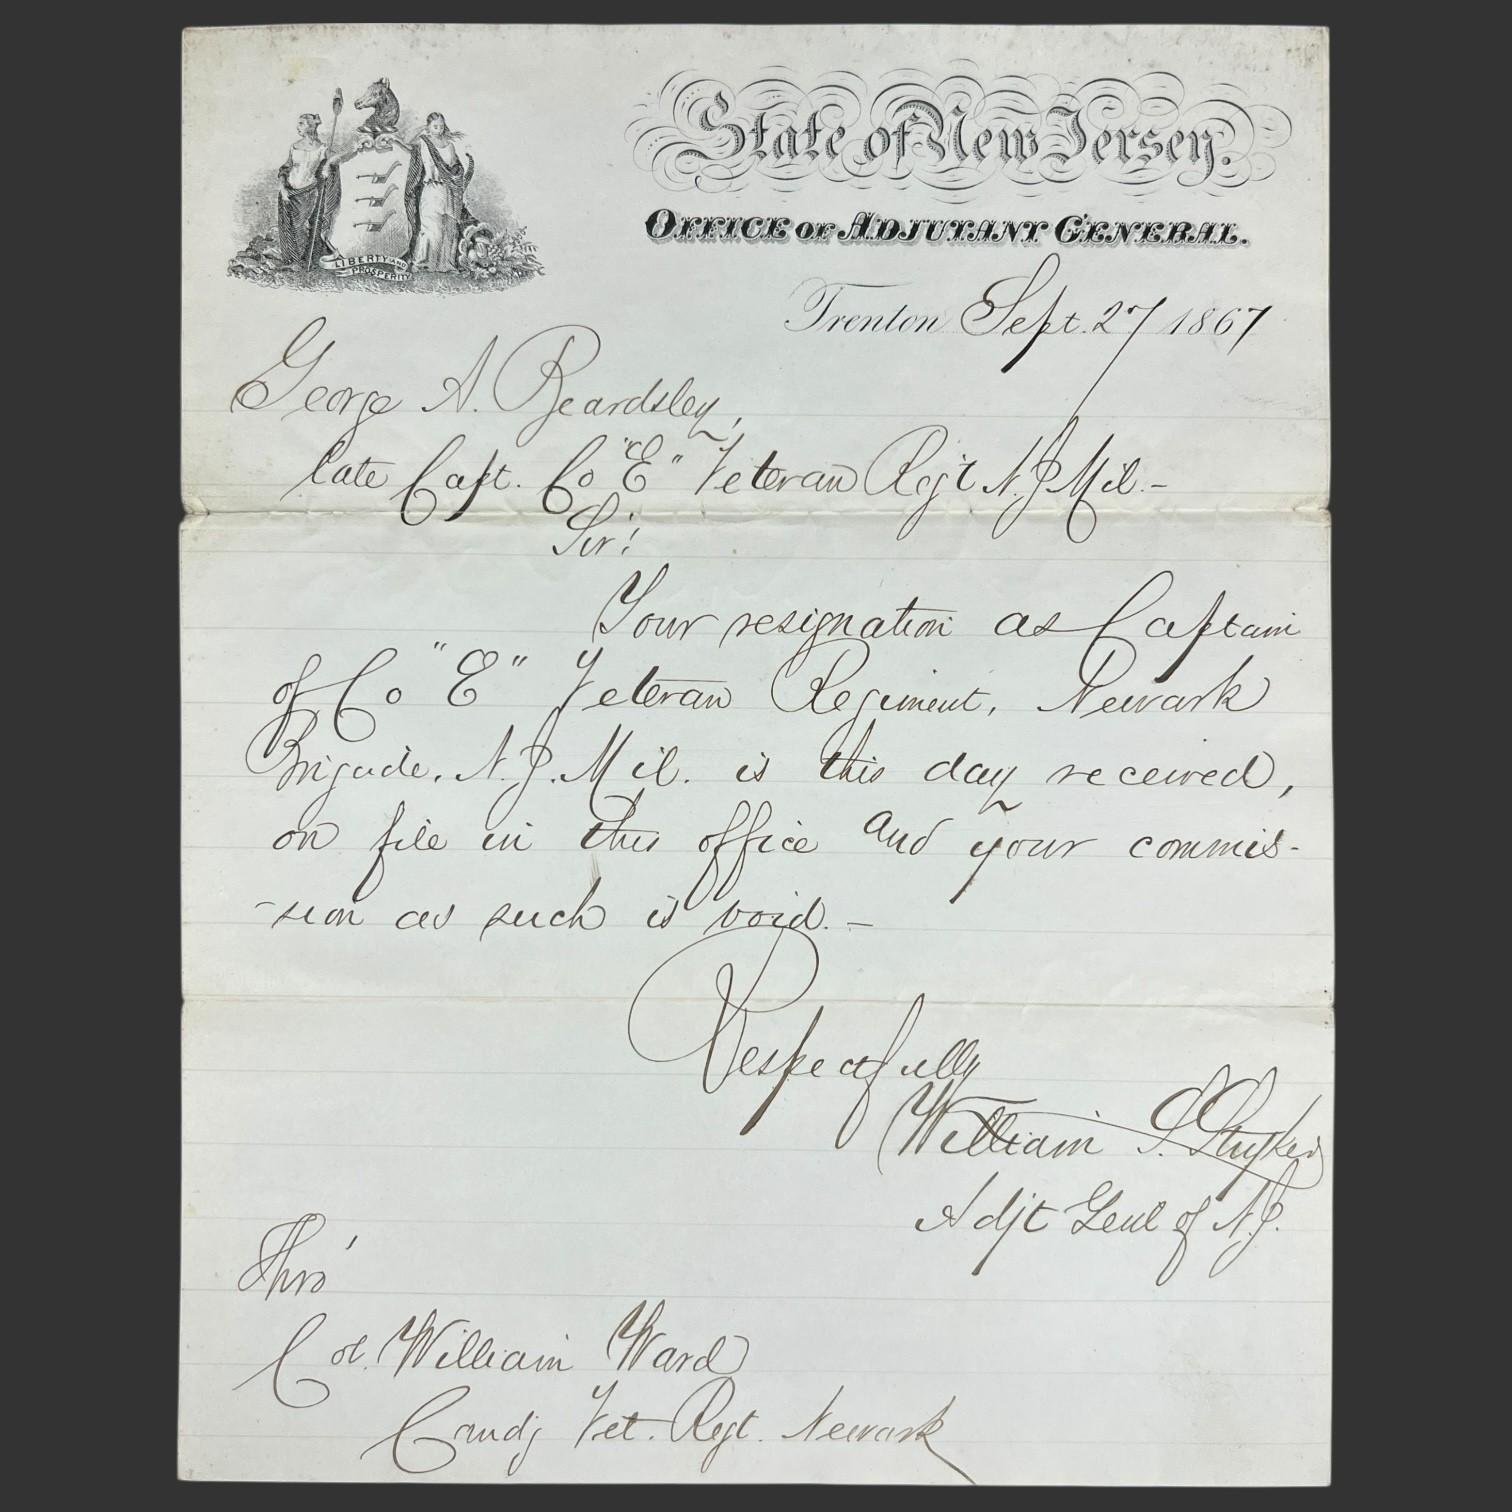 LIBERTY AND
PROSPERITY
State of New Jersey.
OFFICE OF ADJUTANT GENERAL.
Trenton Sept. 27 1867
George A. Beardsley,
late Capt. Co "E" Veteran Regt N.J. Mil. -
Sir!
Your resignation as Captain
of Co "E" Veteran Regiment, Newark
Brigade. N.J. Mil. is this day received,
on file in this office and your commis-
-sion as such is void. -
Respectfully
William S. Stryker
Adjt Genl of N.J.
Thro'
Col. William Ward
Comdg Vet. Regt. Newark